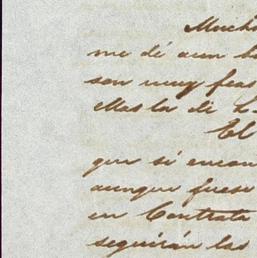 Mucho
me dé aun la
son muy feas
Mas la di L
El
que si encon
aunque fuese
en Contrata
seguirán las